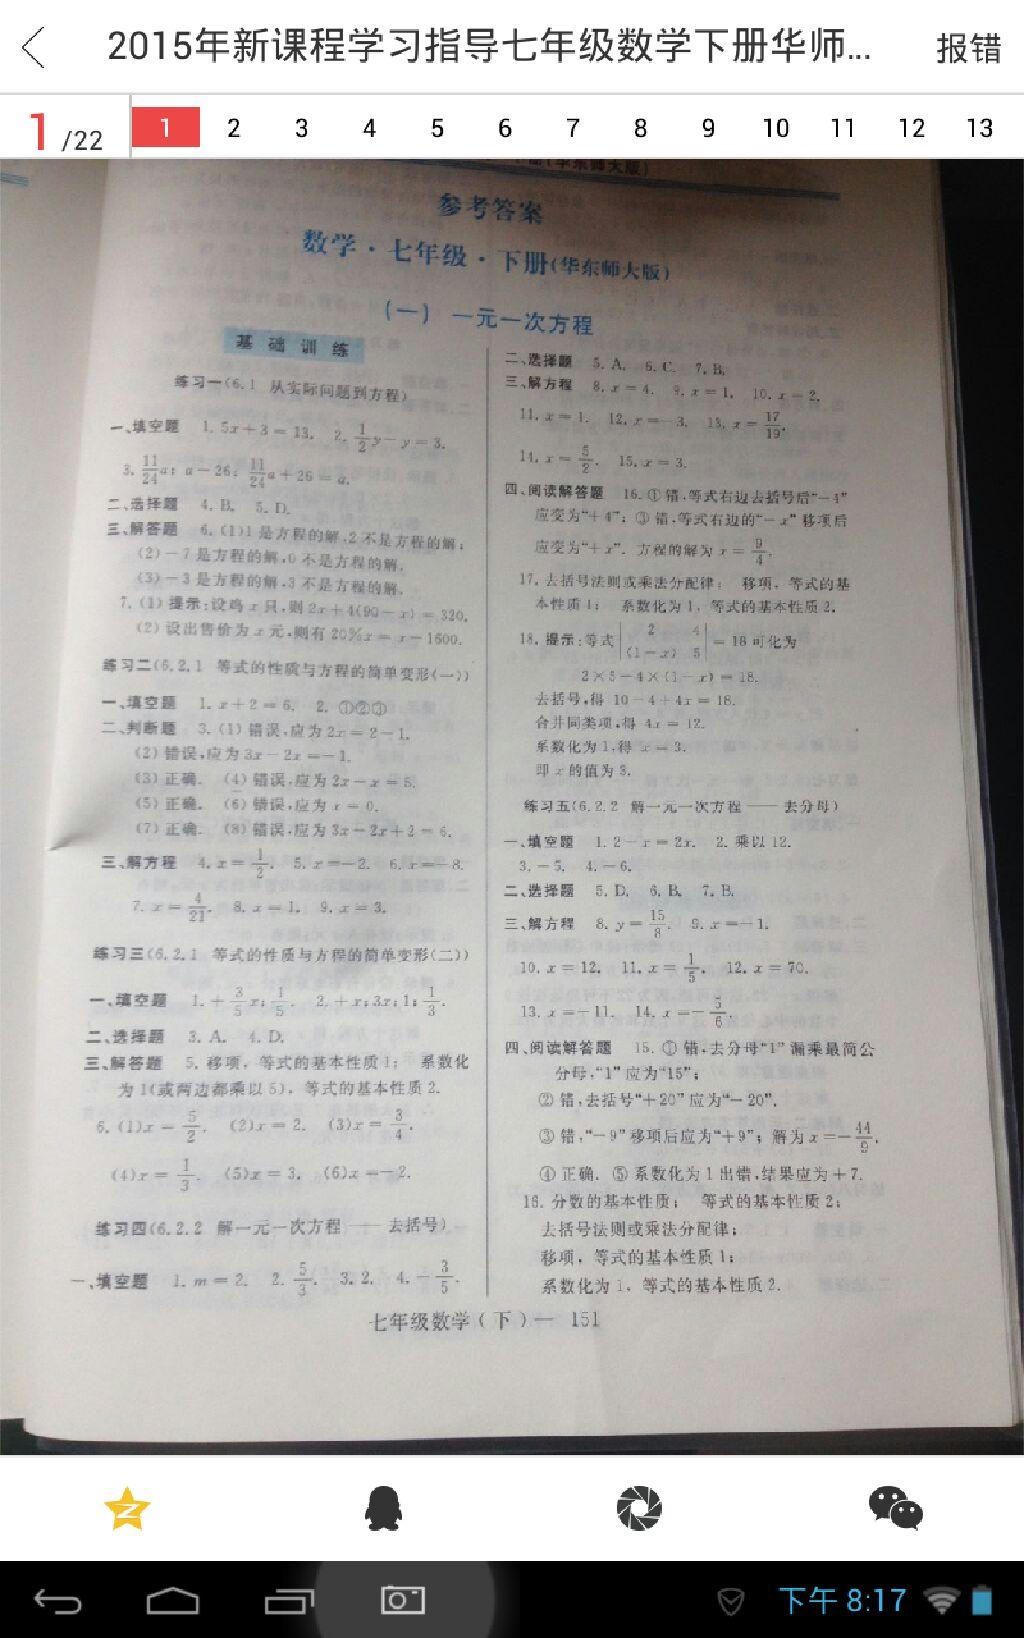 2015年新课程学习指导七年级数学下册华师... 报错
1/22 1 2 3 4 5 6 7 8 9 10 11 12 13
参考答案
数学·七年级·下册(华东师大版)
(一) 一元一次方程
基础训练
练习一(6.1 从实际问题到方程)
一、填空题 1. 5x+3=13. 2. 1/2y-y=3.
3. 11/24a; a-26; 11/24a+26=a.
二、选择题 4. B. 5. D.
三、解答题 6. (1)1是方程的解,2不是方程的解;
(2)-7是方程的解,0不是方程的解.
(3)-3是方程的解,3不是方程的解.
7. (1)提示:设鸡x只,则2x+4(90-x)=320.
(2)设出售价为x元,则有20%x=x-1600.
练习二(6.2.1 等式的性质与方程的简单变形(一))
一、填空题 1. x+2=6. 2. ①②③
二、判断题 3. (1)错误,应为2x=2-1.
(2)错误,应为3x-2x=-1.
(3)正确. (4)错误,应为2x-x=5.
(5)正确. (6)错误,应为x=0.
(7)正确. (8)错误,应为3x-2x+2=6.
三、解方程 4. x=1/2. 5. x=-2. 6. x=-8.
7. x=4/21. 8. x=1. 9. x=3.
练习三(6.2.1 等式的性质与方程的简单变形(二))
一、填空题 1. +3/5x; 1/5. 2. +x; 3x; 1; 1/3.
二、选择题 3. A. 4. D.
三、解答题 5. 移项, 等式的基本性质1; 系数化
为1(或两边都乘以5), 等式的基本性质2.
6. (1)x=5/2. (2)x=2. (3)x=3/4.
(4)x=1/3. (5)x=3. (6)x=-2.
练习四(6.2.2 解一元一次方程——去括号)
一、填空题 1. m=2. 2. 5/3. 3. 2. 4. -3/5.
二、选择题 5. A. 6. C. 7. B.
三、解方程 8. x=4. 9. x=1. 10. x=2.
11. x=1. 12. x=-3. 13. x=17/19.
14. x=5/2. 15. x=3.
四、阅读解答题 16. ①错,等式右边去括号后“-4”
应变为“+4”; ③错,等式右边的“-x”移项后
应变为“+x”. 方程的解为x=9/4.
17. 去括号法则或乘法分配律; 移项, 等式的基
本性质1; 系数化为1, 等式的基本性质2.
18. 提示:等式|2 4; (1-x) 5|=18可化为
2×5-4×(1-x)=18.
去括号,得 10-4+4x=18.
合并同类项,得 4x=12.
系数化为1,得 x=3.
即x的值为3.
练习五(6.2.2 解一元一次方程——去分母)
一、填空题 1. 2-x=2x. 2. 乘以12.
3. -5. 4. -6.
二、选择题 5. D. 6. B. 7. B.
三、解方程 8. y=15/8. 9. x=-1.
10. x=12. 11. x=1/5. 12. x=70.
13. x=-11. 14. x=-5/6.
四、阅读解答题 15. ①错,去分母“1”漏乘最简公
分母,“1”应为“15”;
②错,去括号“+20”应为“-20”.
③错,“-9”移项后应为“+9”; 解为x=-44/9.
④正确. ⑤系数化为1出错,结果应为+7.
16. 分数的基本性质; 等式的基本性质2;
去括号法则或乘法分配律;
移项, 等式的基本性质1;
系数化为1, 等式的基本性质2.
七年级数学(下)— 151
下午 8:17